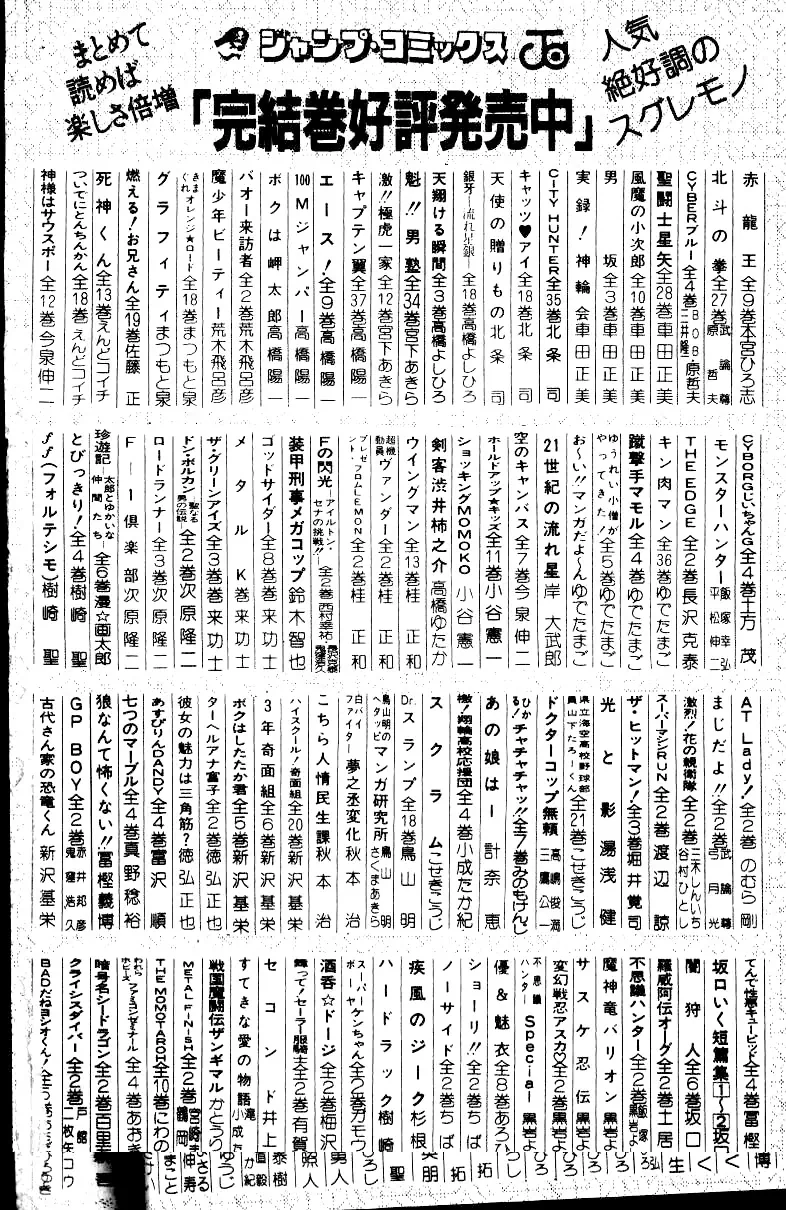 まとめて
読めば
楽しさ倍増
ジャンプ・コミックス
人気
絶好調の
スグレモノ
「完結巻好評発売中」
赤龍王全9巻本宮ひろ志
北斗の拳全27巻武論尊 原哲夫
CYBERブルー全4巻BOB・原哲夫 三井隆一
聖闘士星矢全28巻車田正美
風魔の小次郎全10巻車田正美
男坂全3巻車田正美
実録!神輪会車田正美
CITY HUNTER全35巻北条司
キャッツ♥アイ全18巻北条司
天使の贈りもの北条司
銀牙―流れ星銀―全18巻高橋よしひろ
天翔ける瞬間全3巻高橋よしひろ
魁!!男塾全34巻宮下あきら
激!!極虎一家全12巻宮下あきら
キャプテン翼全37巻高橋陽一
エース!全9巻高橋陽一
100Mジャンパー高橋陽一
ボクは岬太郎高橋陽一
バオー来訪者全2巻荒木飛呂彦
魔少年ビーティー荒木飛呂彦
きまぐれオレンジ★ロード全18巻まつもと泉
グラフィティまつもと泉
燃える!お兄さん全19巻佐藤正
死神くん全13巻えんどコイチ
ついでにとんちんかん全18巻えんどコイチ
神様はサウスポー全12巻今泉伸二
CYBORGじいちゃんG全4巻土方茂
モンスターハンター飯塚幸弘 平松伸二
THE EDGE全2巻長沢克泰
キン肉マン全36巻ゆでたまご
蹴撃手マモル全4巻ゆでたまご
ゆうれい小僧がやってきた!全5巻ゆでたまご
お〜い!!マンガだよ〜んゆでたまご
21世紀の流れ星岸大武郎
空のキャンバス全7巻今泉伸二
ホールドアップ★キッズ全11巻小谷憲一
ショッキングMOMOKO小谷憲一
剣客渋井柿之介高橋ゆたか
ウイングマン全13巻桂正和
超機動員ヴァンダー全2巻桂正和
プレゼント・フロムLEMON全2巻桂正和
Fの閃光―アイルトン・セナの挑戦!!―全2巻西村幸祐・鬼窪浩久
装甲刑事メガコップ鈴木智也
ゴッドサイダー全8巻巻来功士
メタルK巻来功士
ザ・グリーンアイズ全3巻巻来功士
ドン・ボルカン―聖なる男の伝説全2巻次原隆二
ロードランナー全3巻次原隆二
F―1倶楽部次原隆二
珍遊記―太郎とゆかいな仲間たち―全6巻漫☆画太郎
とびっきり!全4巻樹崎聖
ff(フォルテシモ)樹崎聖
AT Lady!全2巻のむら剛
まじだよ!!全2巻武論尊 弓月光
激烈!花の親衛隊全2巻三木しんいち 谷村ひとし
スーパーマシンRUN全2巻渡辺諒
ザ・ヒットマン!全3巻堀井覚司
光と影湯浅健
県立海空高校野球部員山下たろーくん全21巻こせきこうじ
ドクターコップ無頼高嶋俊満 三鷹公一
ひかる!チャチャチャッ!!全7巻みのもけんじ
あの娘はー計奈恵
檄!翔輪高校応援団全4巻小成たか紀
スクラムこせきこうじ
Dr.スランプ全18巻鳥山明
鳥山明のヘタッピマンガ研究所鳥山明 さくまあきら
白バイファイター夢之丞変化秋本治
こちら人情民生課秋本治
ハイスクール!奇面組全20巻新沢基栄
3年奇面組全6巻新沢基栄
ボクはしたたか君全5巻新沢基栄
ターヘルアナ富子全2巻徳弘正也
彼女の魅力は三角筋?徳弘正也
あすぴりんDANDY全4巻富沢順
七つのマーブル全4巻真野稔裕
狼なんて怖くない!!冨樫義博
GP BOY全2巻赤井邦彦 鬼窪浩久
古代さん家の恐竜くん新沢基栄
てんで性悪キューピッド全4巻冨樫
坂口いく短篇集1〜2坂口
闇狩人全6巻坂口
羅威阿伝オーグ全2巻土居
不思議ハンター全2巻飯塚 黒岩よ
魔神竜バリオン黒岩よ
サスケ忍伝黒岩よ
変幻戦忍アスカ♡全2巻黒岩よ
不思議ハンターSpecial黒岩よ
優&魅衣全8巻あろひ
ショーリ!!全2巻ちば
ノーサイド全2巻ちば
疾風のジーク杉根
ハードラック樹崎
スーパーケンちゃん全2巻ガモウ
酒呑☆ドージ全2巻梅沢
舞って!セーラー服騎士全2巻有賀
セコンド井上
すてきな愛の物語滝 小成た
戦国魔闘伝ザンギマルかとうり
METAL FINISH全2巻宮崎ま 鶴岡
THE MOMOTAROH全10巻にわの
われらホビーズファミコンゼミナール全4巻あおき
暗号名シードラゴン全2巻百里
クライシスダイバー全2巻戸館 二枚矢コウ
BADだねヨシオくん!